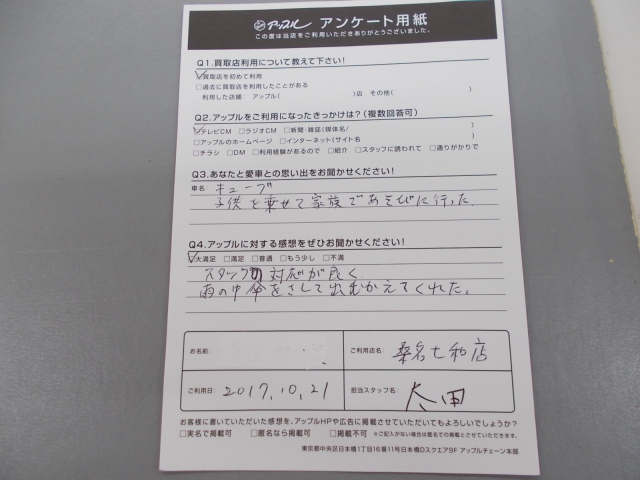 アップル アンケート用紙
この度は当店をご利用いただきありがとうございました。
Q1.買取店利用について教えて下さい!
☑買取店を初めて利用
□過去に買取店を利用したことがある
利用した店舗: アップル( )店 その他( )
Q2.アップルをご利用になったきっかけは?(複数回答可)
☑テレビCM □ラジオCM □新聞・雑誌(媒体名/ )
□アップルのホームページ □インターネット(サイト名 )
□チラシ □DM □利用経験があるので □紹介 □スタッフに誘われて □通りがかりで
Q3.あなたと愛車との思い出をお聞かせください!
車名 キューブ
子供を乗せて家族であそびに行った
Q4.アップルに対する感想をぜひお聞かせください!
☑大満足 □満足 □普通 □もう少し □不満
スタッフの対応が良く
雨の中傘をさして出むかえてくれた。
お名前
ご利用店名: 桑名七和店
ご利用日 2017.10.21
担当スタッフ名: 太田
お客様に書いていただいた感想を、アップルHPや広告に掲載させていただいてもよろしいでしょうか?
□実名で掲載可 □匿名なら掲載可 □掲載不可 ※ご記入がない場合は匿名での掲載とさせていただきます。
東京都中央区日本橋1丁目16番11号日本橋Dスクエア9F アップルチェーン本部